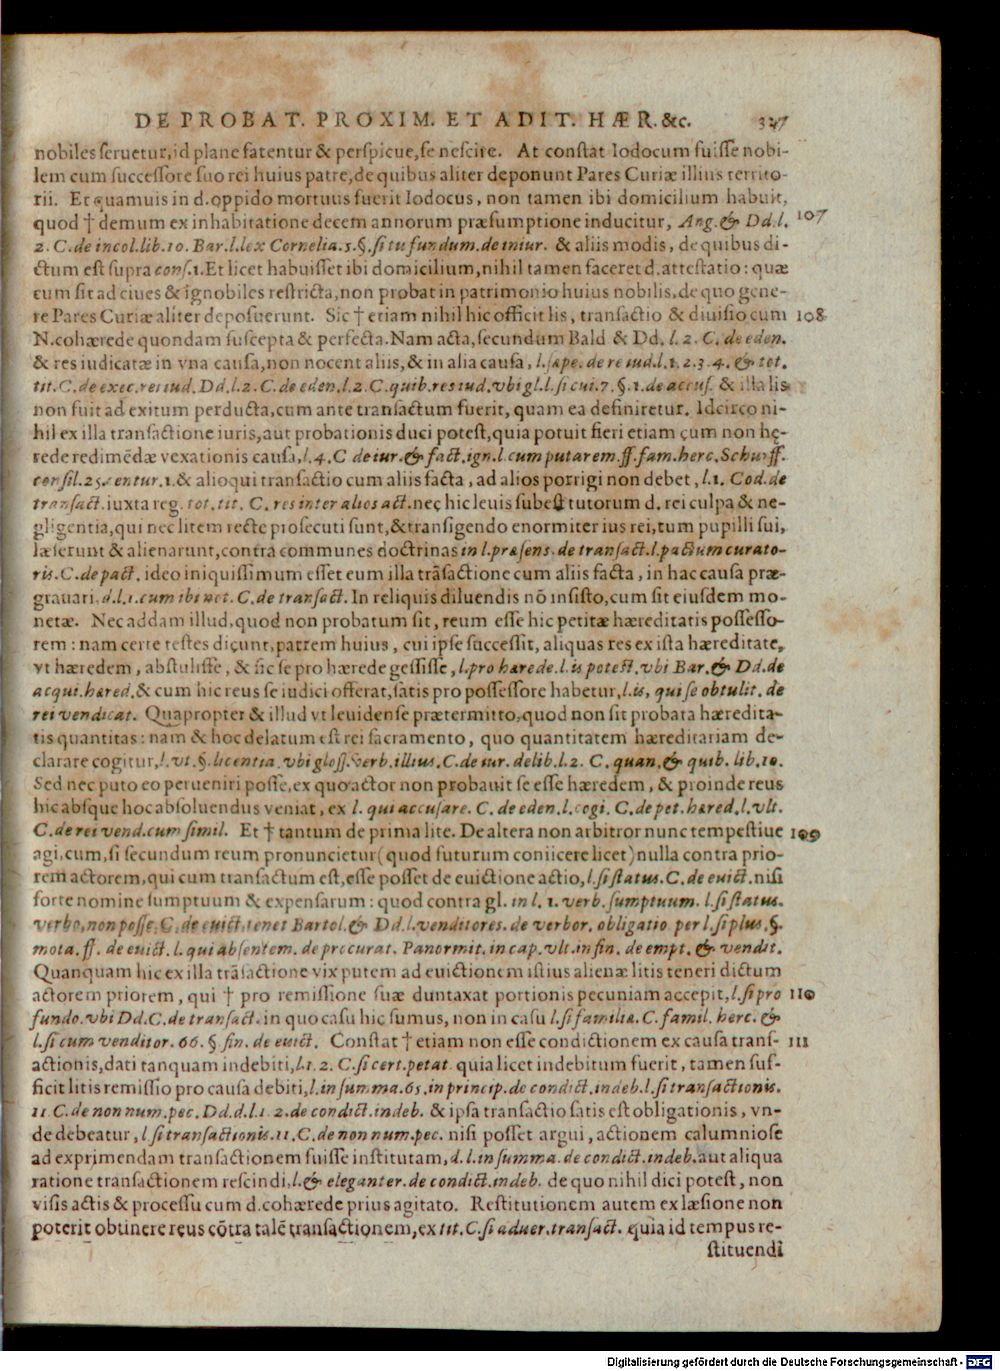 DE PROBAT. PROXIM. ET ADIT. HÆR. &c.
nobiles seruetur, id plane fatentur & perspicue, se nescire. At constat Iodocum fuisse nobi-
lem cum successore suo rei huius patre, de quibus aliter deponunt Pares Curiæ illius territo-
rii. Et quamuis in d. oppido mortuus fuerit Iodocus, non tamen ibi domicilium habuit,
quod † demum ex inhabitatione decem annorum præsumptione inducitur, Ang. & Dd. l. 107
2. C. de incol. lib. 10. Bar. l. lex Cornelia. 5. §. si tu fundum. de iniur. & aliis modis, de quibus di-
ctum est supra cons. 1. Et licet habuisset ibi domicilium, nihil tamen faceret d. attestatio: quæ
cum sit ad ciues & ignobiles restricta, non probat in patrimonio huius nobilis, de quo gene-
re Pares Curiæ aliter deposuerunt. Sic † etiam nihil hic officit lis, transactio & diuisio cum 108
N. cohærede quondam suscepta & perfecta. Nam acta, secundum Bald & Dd. l. 2. C. de eden.
& res iudicatæ in vna causa, non nocent aliis, & in alia causa, l. sæpe. de re iud. l. 1. 2. 3. 4. & tot.
tit. C. de exec. rei iud. Dd. l. 2. C. de eden. l. 2. C. quib. res iud. vbi gl. l. si cui. 7. §. 1. de accus. & illa lis
non fuit ad exitum perducta, cum ante transactum fuerit, quam ea definiretur. Idcirco ni-
hil ex illa transactione iuris, aut probationis duci potest, quia potuit fieri etiam cum non hę-
rede redimẽdæ vexationis causa, l. 4. C de iur. & fact. ign. l. cum putarem. ff. fam. herc. Schurff.
consil. 25. centur. 1. & alioqui transactio cum aliis facta, ad alios porrigi non debet, l. 1. Cod. de
transact. iuxta reg. tot. tit. C. res inter alios act. nec hic leuis subest tutorum d. rei culpa & ne-
gligentia, qui nec litem recte prosecuti sunt, & transigendo enormiter ius rei, tum pupilli sui,
læserunt & alienarunt, contra communes doctrinas in l. præsens. de transact. l. pactum curato-
ris. C. de pact. ideo iniquissimum esset eum illa trãsactione cum aliis facta, in hac causa præ-
grauari. d. l. 1. cum ibi not. C. de transact. In reliquis diluendis nõ insisto, cum sit eiusdem mo-
netæ. Nec addam illud, quod non probatum sit, reum esse hic petitæ hæreditatis possesso-
rem: nam certe testes dicunt, patrem huius, cui ipse successit, aliquas res ex ista hæreditate,
vt hæredem, abstulisse, & sic se pro hærede gessisse, l. pro hærede. l. is potest. vbi Bar. & Dd. de
acqui. hæred. & cum hic reus se iudici offerat, satis pro possessore habetur, l. is, qui se obtulit. de
rei vendicat. Quapropter & illud vt leuidense prætermitto, quod non sit probata hæredita-
tis quantitas: nam & hoc delatum est rei sacramento, quo quantitatem hæreditariam de-
clarare cogitur, l. vt. §. licentia. vbi gloss. verb. illius. C. de iur. delib. l. 2. C. quan. & quib. lib. 10.
Sed nec puto eo perueniri posse, ex quo actor non probauit se esse hæredem, & proinde reus
hic absque hoc absoluendus veniat, ex l. qui accusare. C. de eden. l. cogi. C. de pet. hæred. l. vlt.
C. de rei vend. cum simil. Et † tantum de prima lite. De altera non arbitror nunc tempestiue 109
agi, cum, si secundum reum pronuncietur (quod futurum coniicere licet) nulla contra prio-
rem actorem, qui cum transactum est, esse posset de euictione actio, l. si status. C. de euict. nisi
forte nomine sumptuum & expensarum: quod contra gl. in l. 1. verb. sumptuum. l. si status.
verbo, non posse, C. de euict. tenet Bartol. & Dd. l. venditores. de verbor. obligatio per l. si plus. §.
mota. ff. de euict. l. qui absentem. de procurat. Panormit. in cap. vlt. in fin. de empt. & vendit.
Quanquam hic ex illa trãsactione vix putem ad euictionem istius alienæ litis teneri dictum
actorem priorem, qui † pro remissione suæ duntaxat portionis pecuniam accepit, l. si pro 110
fundo. vbi Dd. C. de transact. in quo casu hic sumus, non in casu l. si familiæ. C. famil. herc. &
l. si cum venditor. 66. § fin. de euict. Constat † etiam non esse condictionem ex causa trans- 111
actionis, dati tanquam indebiti, l. 1. 2. C. si cert. petat. quia licet indebitum fuerit, tamen suf-
ficit litis remissio pro causa debiti, l. in summa. 65. in princip. de condict. indeb. l. si transactionis.
11 C. de non num. pec. Dd. d. l. 1. 2. de condict. indeb. & ipsa transactio satis est obligationis, vn-
de debeatur, l. si transactionis. 11. C. de non num. pec. nisi posset argui, actionem calumniose
ad exprimendam transactionem fuisse institutam, d. l. in summa. de condict. indeb. aut aliqua
ratione transactionem rescindi, l. & eleganter. de condict. indeb. de quo nihil dici potest, non
visis actis & processu cum d. cohærede prius agitato. Restitutionem autem ex læsione non
poterit obtinere reus cõtra talẽ transactionem, ex tit. C. si aduer. transact. quia id tempus re-
stituendi
Digitalisierung gefördert durch die Deutsche Forschungsgemeinschaft - DFG